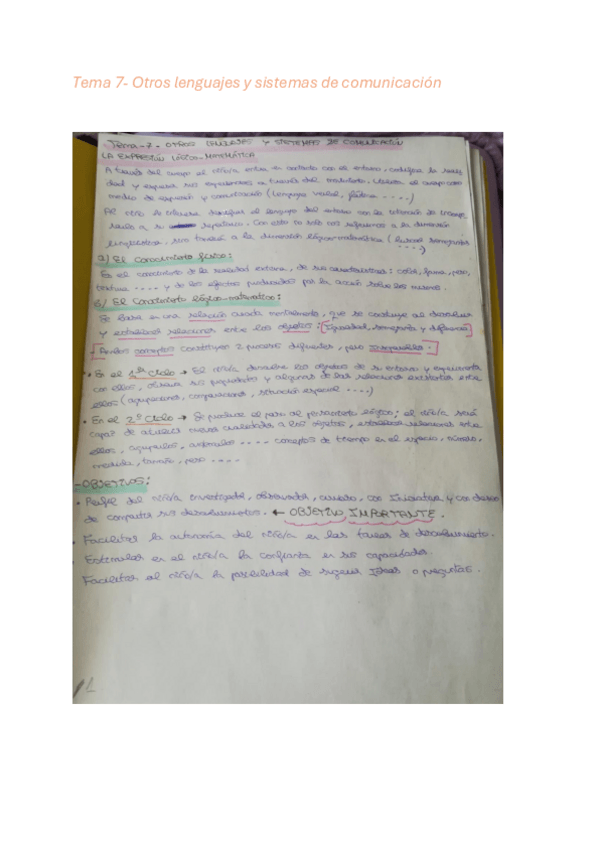 Tema 7- Otros lenguajes y sistemas de comunicación
Tema-7. OTROS LENGUAJES Y SISTEMAS DE COMUNICACIÓN
LA EXPRESIÓN LÓGICO-MATEMÁTICA
A través del cuerpo el niño/a entra en contacto con el entorno, codifica la reali
dad y expresa sus experiencias en función del movimiento, utiliza el cuerpo como
medio de expresión y comunicación (lenguaje verbal, plástico ....)
niño lo interesa descifrar el lenguaje del entorno con la intención de incorp
rarlo a su repertorio. Con esto no solo nos referimos a la dimensión
lingüística, sino también a la dimensión lógico-matemática (
....)
a) El Conocimiento físico:
Es el conocimiento de la realidad externa, de sus características: color, forma, peso,
textura .... y de los efectos producidos por la acción sobre los mismos.
b) El Conocimiento lógico-matemático:
Se basa en una relación creada mentalmente, que se construye al descubrir
y establecer relaciones entre los objetos: [Igualdad, semejanza y diferencia]
[Ambos conceptos constituyen 2 procesos diferentes, pero inseparables.]
• En el 1º Ciclo → El niño/a descubre los objetos de su entorno y experimenta
con ellos, observa sus propiedades y algunas de las relaciones existentes entre
ellos (agrupaciones, comparaciones, situación espacial ....)
• En el 2º Ciclo → Se produce el paso al pensamiento lógico; el niño/a será
capaz de atribuir nuevas cualidades a los objetos, establecer relaciones entre
ellos, agruparlos, .... conceptos de tiempo en el espacio, número,
medida, tamaño, peso ....
-OBJETIVOS:
• Perfil del niño/a investigador, observador, curioso, con iniciativa y con deseo
de compartir sus descubrimientos. ← OBJETIVO IMPORTANTE.
• Facilitar la autonomía del niño/a en las tareas de descubrimiento.
• Estimular en el niño/a la confianza en sus capacidades.
Facilitar al niño/a la posibilidad de sugerir ideas o preguntas.